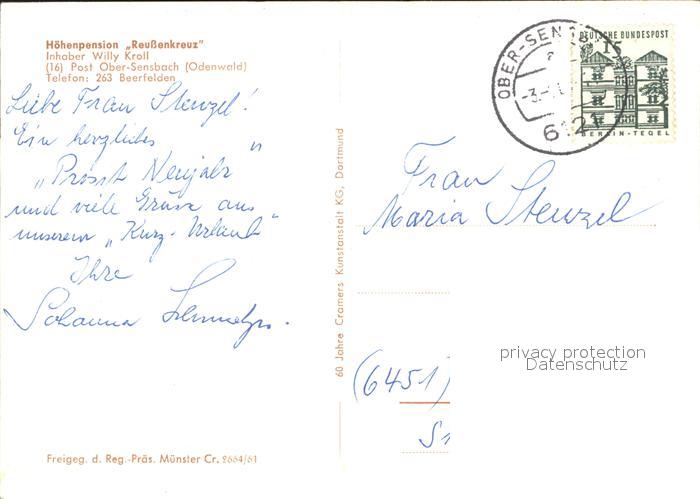 Höhenpension „Reußenkreuz"
Inhaber Willy Kroll
(16) Post Ober-Sensbach (Odenwald)
Telefon: 263 Beerfelden
Liebe Frau Stenzel!
Ein herzliches
„Prosit Neujahr"
und viele Grüße aus
unserem „Kurz-Urlaub"
Ihre
Johanna
60 Jahre Cramers Kunstanstalt KG, Dortmund
Freigeg. d. Reg.-Präs. Münster Cr. 2664/61
OBER-SENSB
-3.-1
612
DEUTSCHE BUNDESPOST
15
BERLIN-TEGEL
Frau
Maria Stenzel
privacy protection
Datenschutz
(6451)